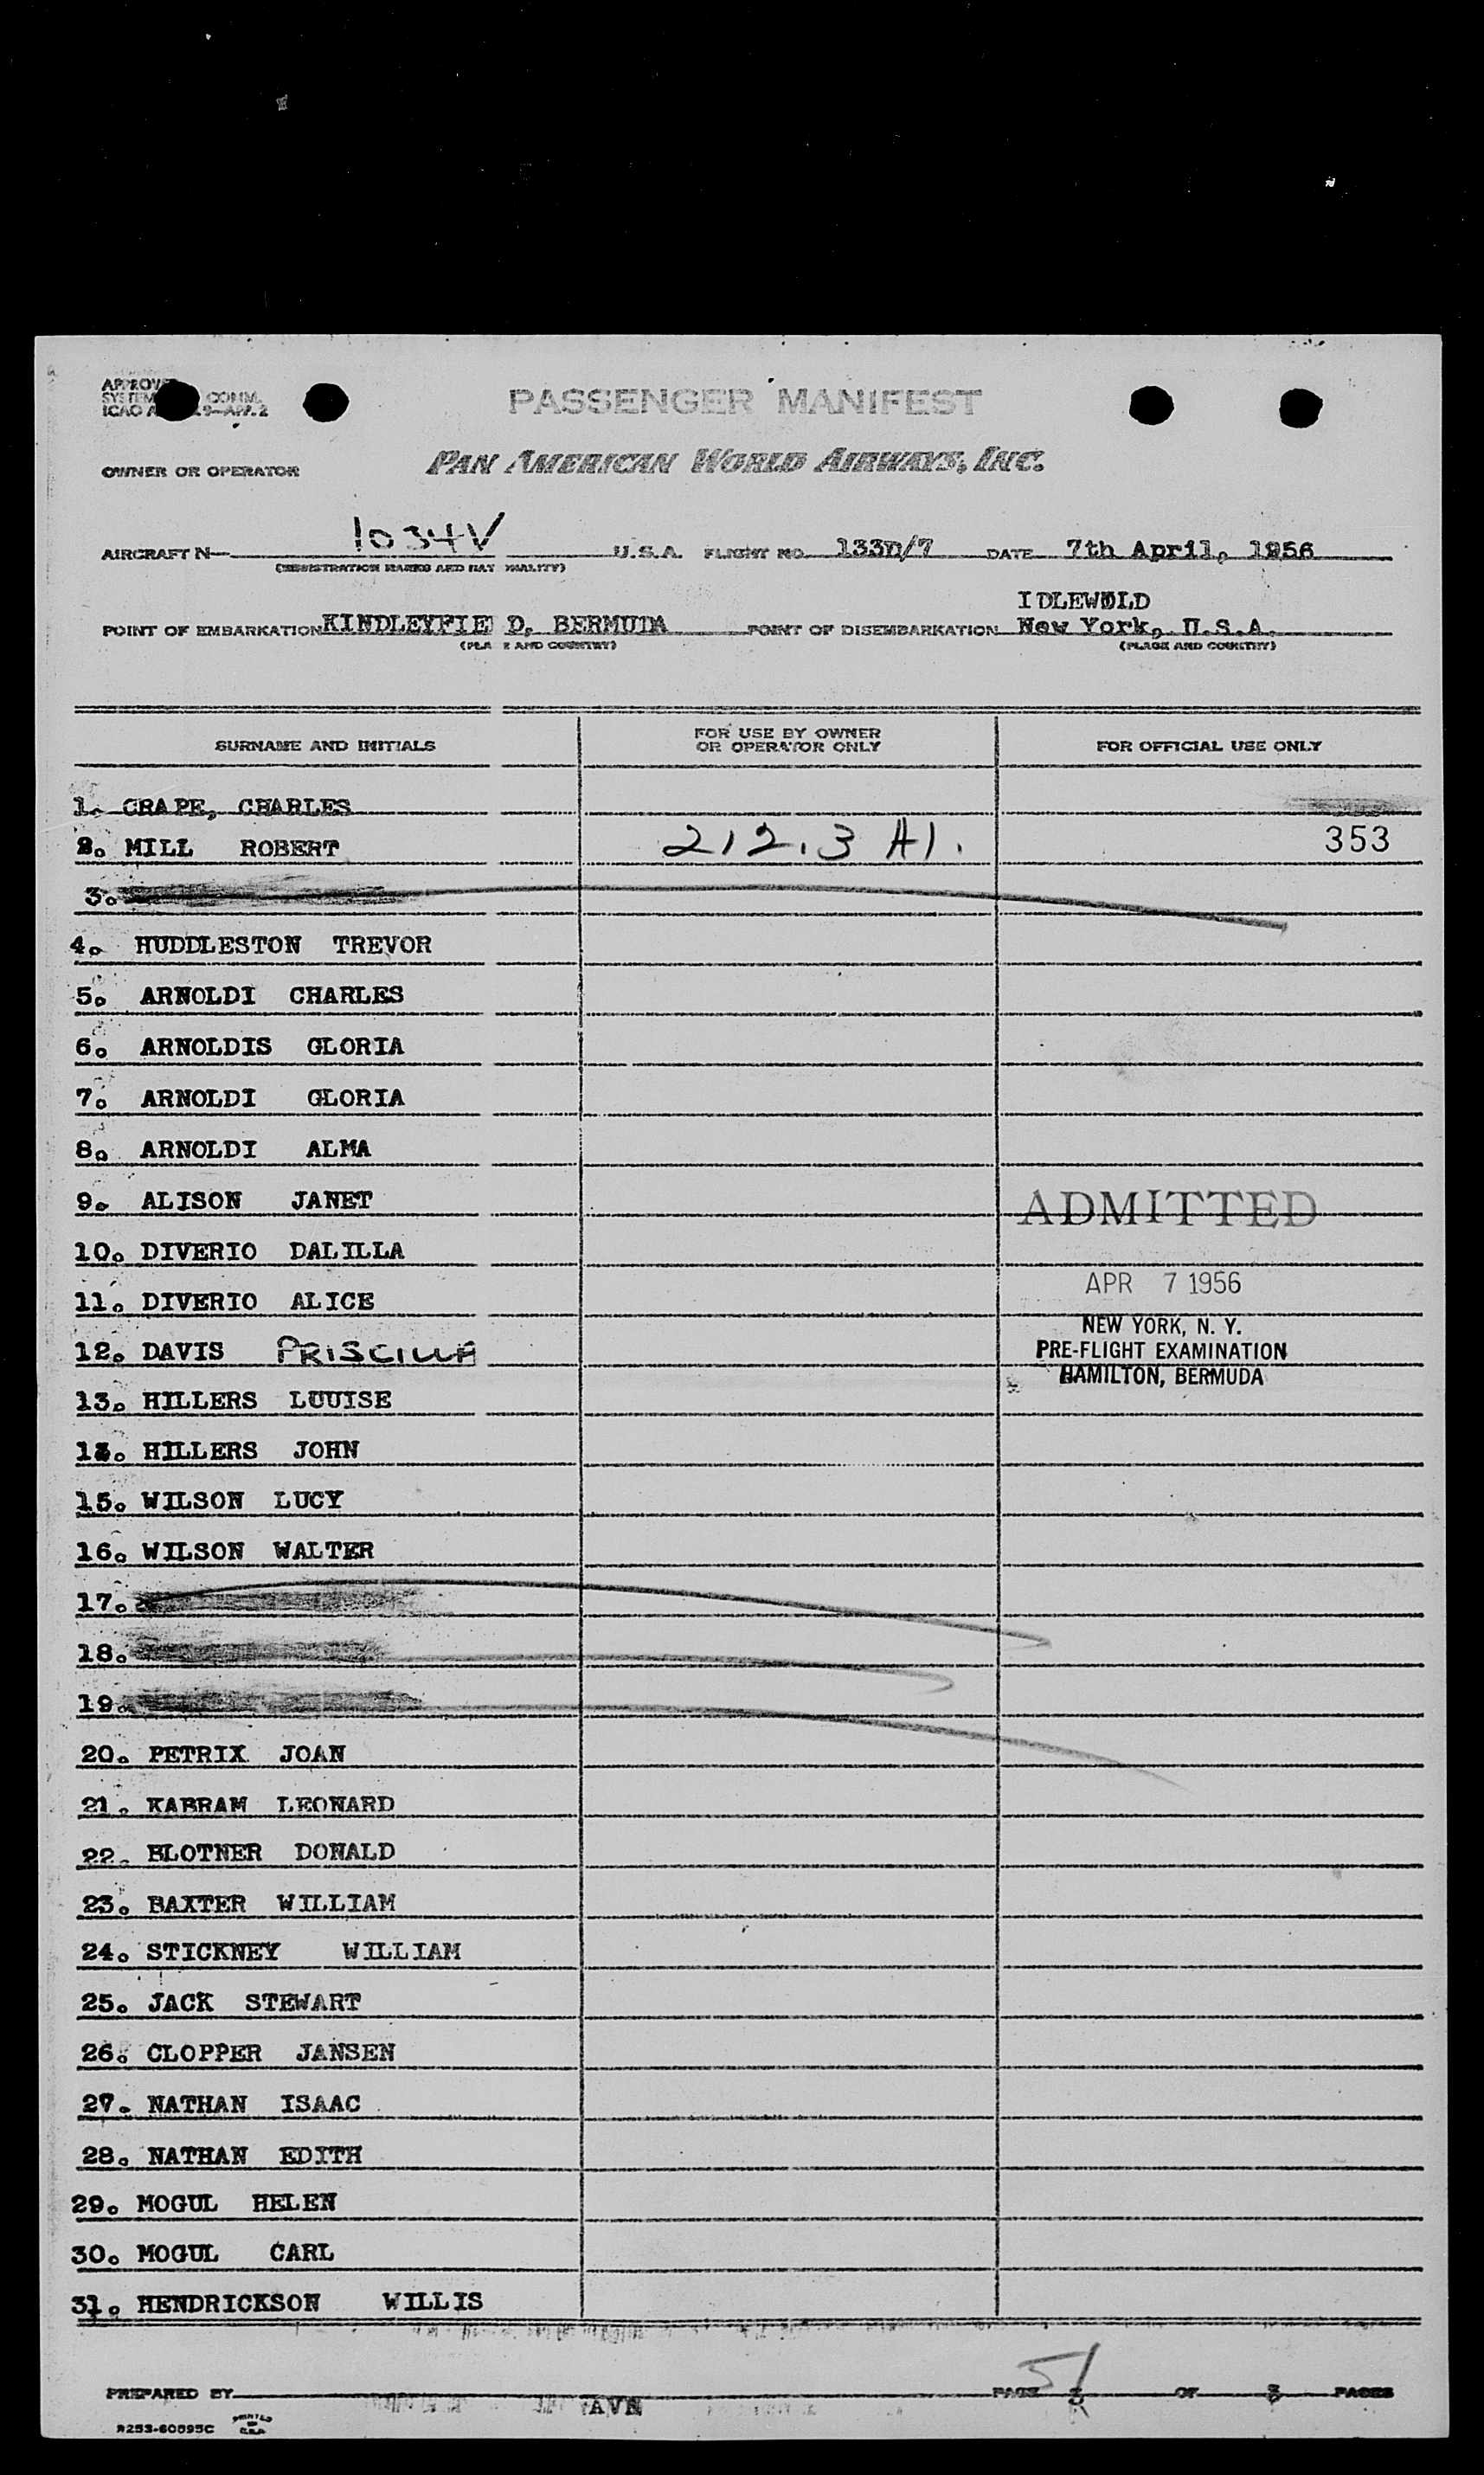 PASSENGER MANIFEST
OWNER OR OPERATOR PAN AMERICAN WORLD AIRWAYS, INC.
AIRCRAFT N- 1034V U.S.A. FLIGHT NO. DATE 7th April, 1956
POINT OF EMBARKATION KINDLEYFIE D, BERMUDA POINT OF DISEMBARKATION IDLEWOLD
New York, U.S.A.
(PLACE AND COUNTRY)
SURNAME AND INITIALS FOR USE BY OWNER OR OPERATOR ONLY FOR OFFICIAL USE ONLY
1. CRAPE, CHARLES
2. MILL ROBERT 212.3 A1. 353
3.
4. HUDDLESTON TREVOR
5. ARNOLDI CHARLES
6. ARNOLDIS GLORIA
7. ARNOLDI GLORIA
8. ARNOLDI ALMA
9. ALISON JANET ADMITTED
10. DIVERIO DALILLA
11. DIVERIO ALICE APR 7 1956
12. DAVIS PRISCILLA NEW YORK, N. Y.
PRE-FLIGHT EXAMINATION
HAMILTON, BERMUDA
13. HILLERS LOUISE
HILLERS JOHN
15. WILSON LUCY
16. WILSON WALTER
17.
18.
19.
20. PETRIX JOAN
21. KABRAM LEONARD
22. BLOTNER DONALD
23. BAXTER WILLIAM
24. STICKNEY WILLIAM
25. JACK STEWART
26. CLOPPER JANSEN
27. NATHAN ISAAC
28. NATHAN EDITH
29. MOGUL HELEN
30. MOGUL CARL
31. HENDRICKSON WILLIS
PREPARED BY AVN PAGE OF 3 PAGES
PRINTED IN U.S.A.